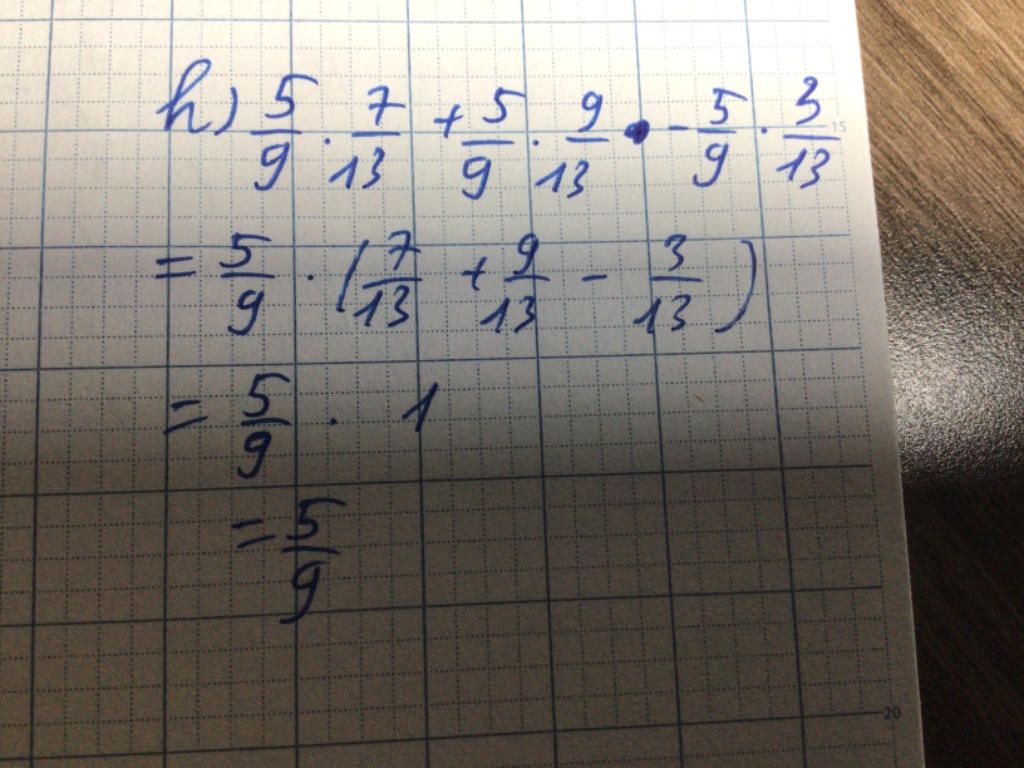 h) 5/9 . 7/13 + 5/9 . 9/13 - 5/9 . 3/13
= 5/9 . (7/13 + 9/13 - 3/13)
= 5/9 . 1
= 5/9
15
20